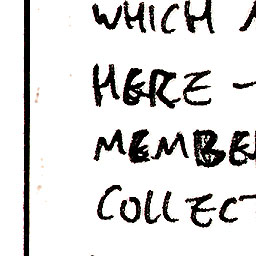 WHICH
HERE -
MEMBE
COLLECT